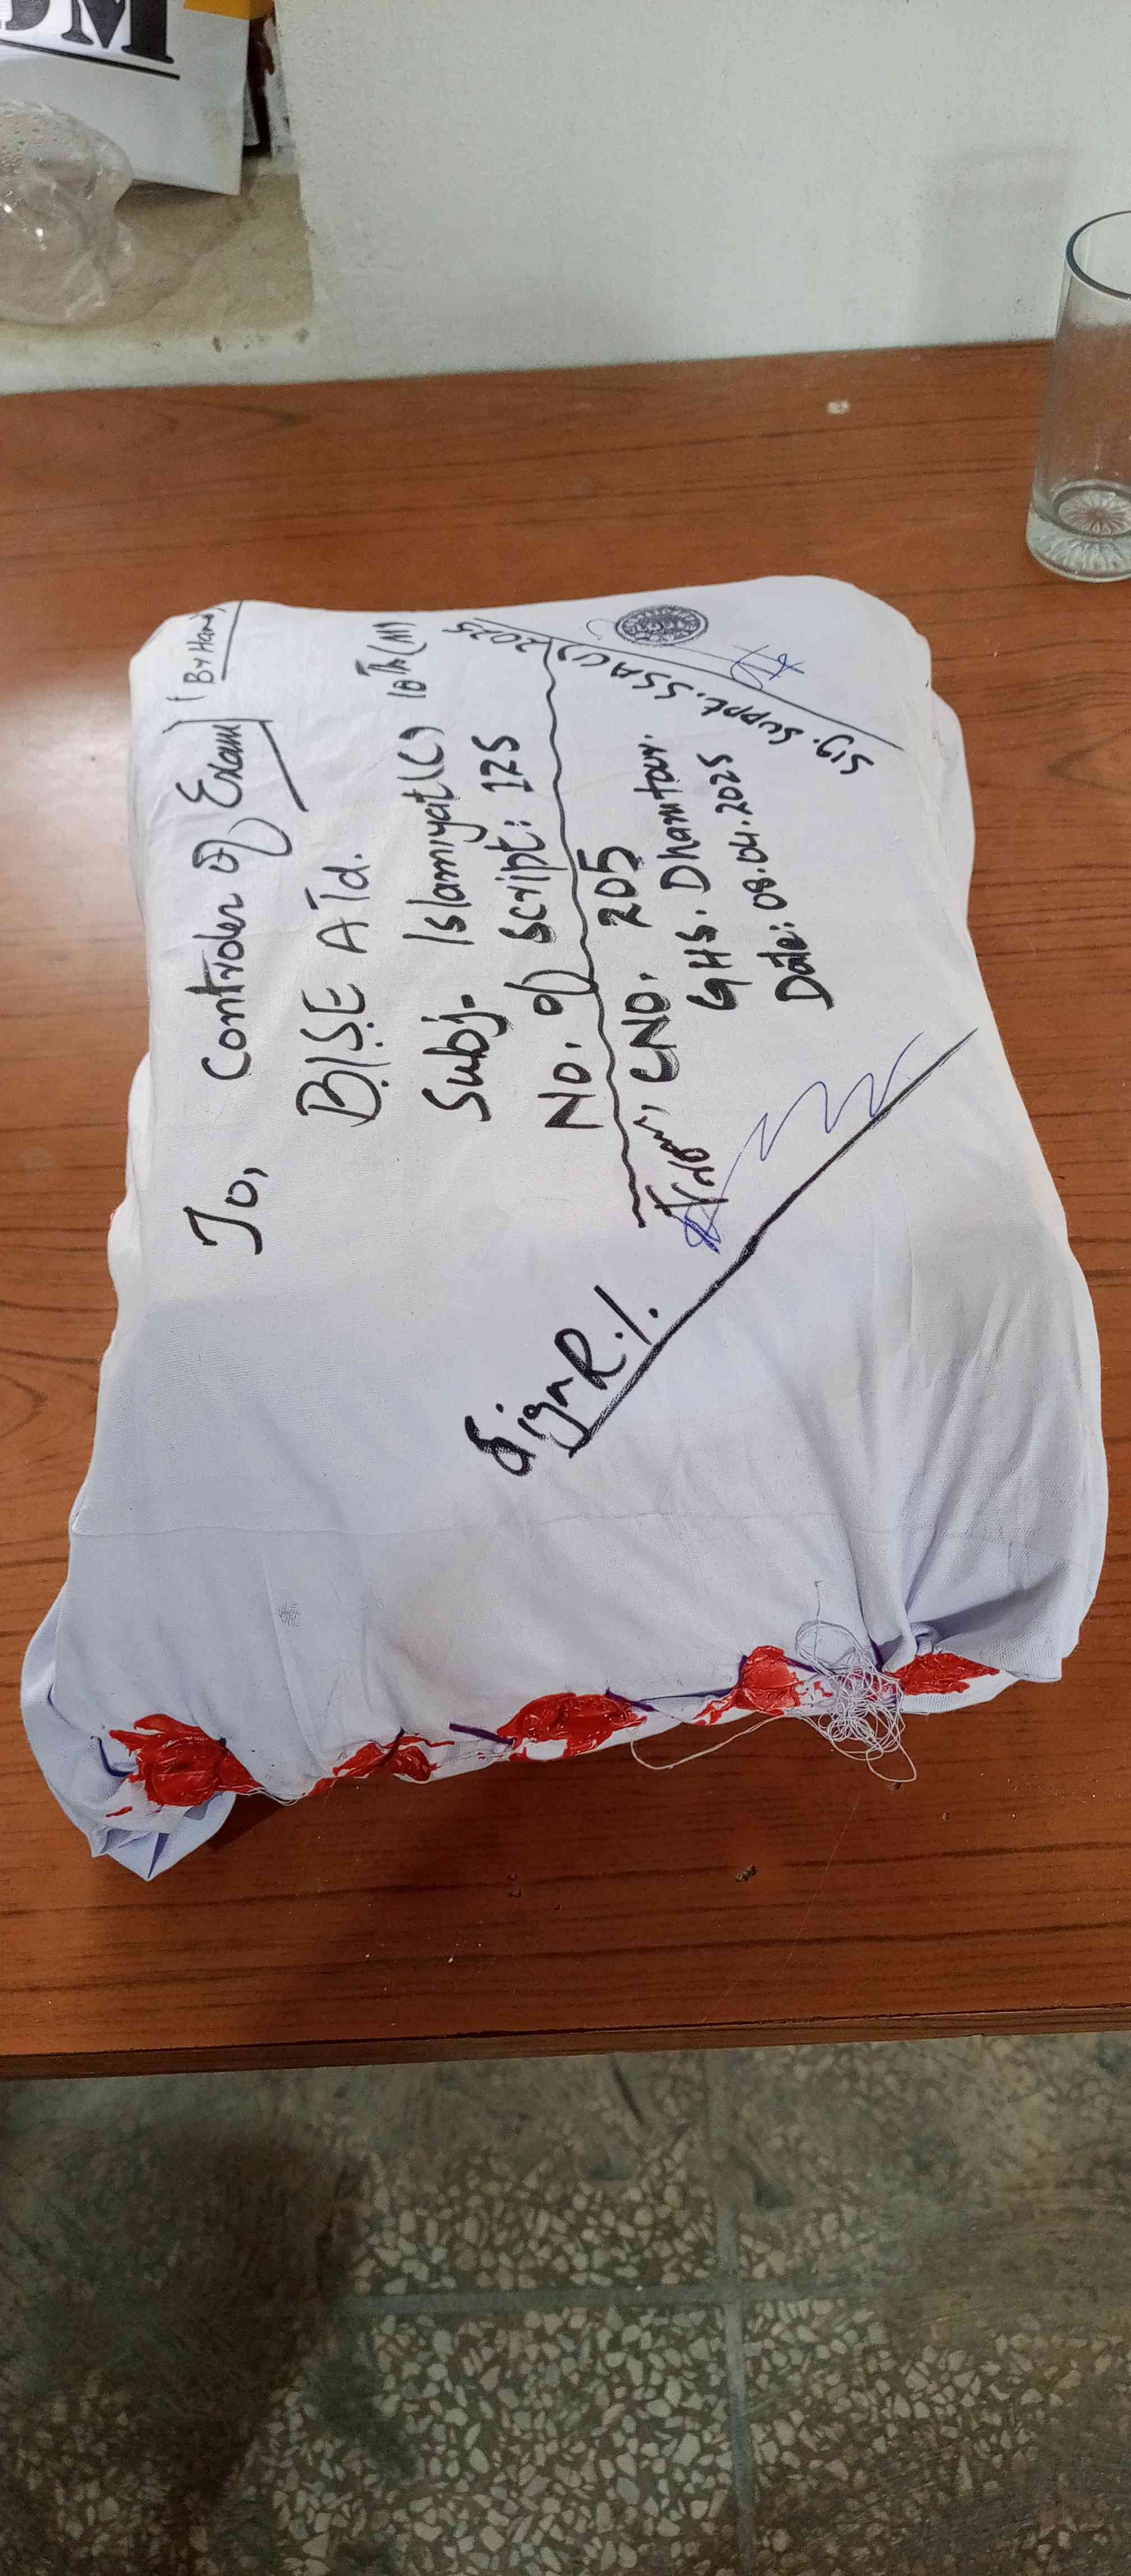 (By Hand)
To,
Controler of Exam
BISE ATd.
Subj. Islamiyat (C) 10th (M)
No. of Script: 125
2025
From, CNO. 205
GHS. Dhamtour.
Date: 08.04.2025
Sig. Suppt. SSA(I) 2025
Sign R.I.
DM